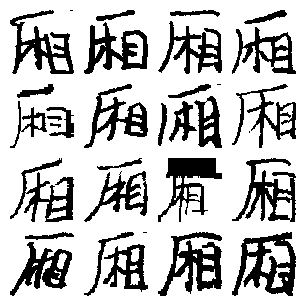 厢厢厢厢
厢厢厢厢
厢厢厢厢
厢厢厢厢